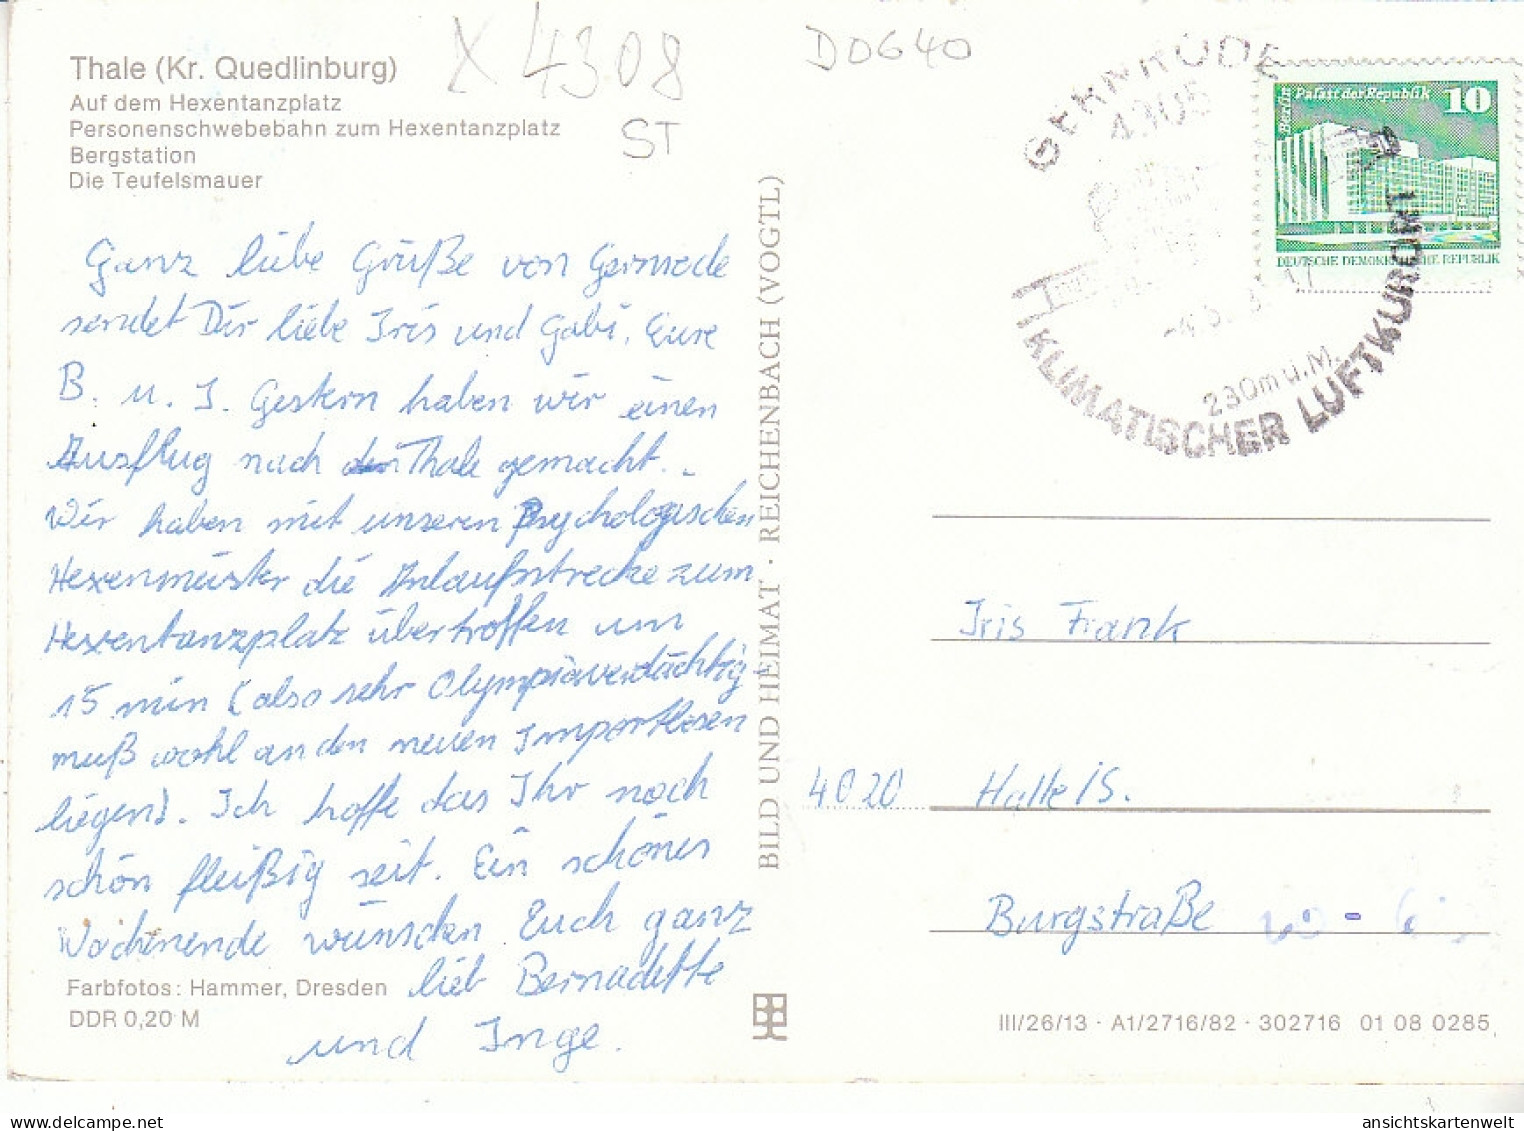 X 4308
ST
D0640
Thale (Kr. Quedlinburg)
Auf dem Hexentanzplatz
Personenschwebebahn zum Hexentanzplatz
Bergstation
Die Teufelsmauer
Ganz liebe Grüße von Gernrode
sendet Dir liebe Iris und Gabi. Eure
B. u. I. Gestern haben wir einen
Ausflug nach Thale gemacht.
Wir haben mit unseren Psychologischen
Hexenmeister die Anlaufstrecke zum
Hexentanzplatz übertroffen um
15 min (also sehr Olympiaverdächtig
muß wohl an den neuen Importlosen
liegen). Ich hoffe das Ihr noch
schön fleißig seit. Ein schönes
Wochenende wünschen Euch ganz
lieb Bernadette
und Inge.
Farbfotos: Hammer, Dresden
DDR 0,20 M
BILD UND HEIMAT · REICHENBACH (VOGTL)
GERNRODE
KLIMATISCHER LUFTKURORT
230m ü.M.
Berlin Palast der Republik 10
DEUTSCHE DEMOKRATISCHE REPUBLIK
Iris Frank
4020 Halle/S.
Burgstraße
III/26/13 · A1/2716/82 · 302716 01 08 0285
ansichtskartenwelt@delcampe.net